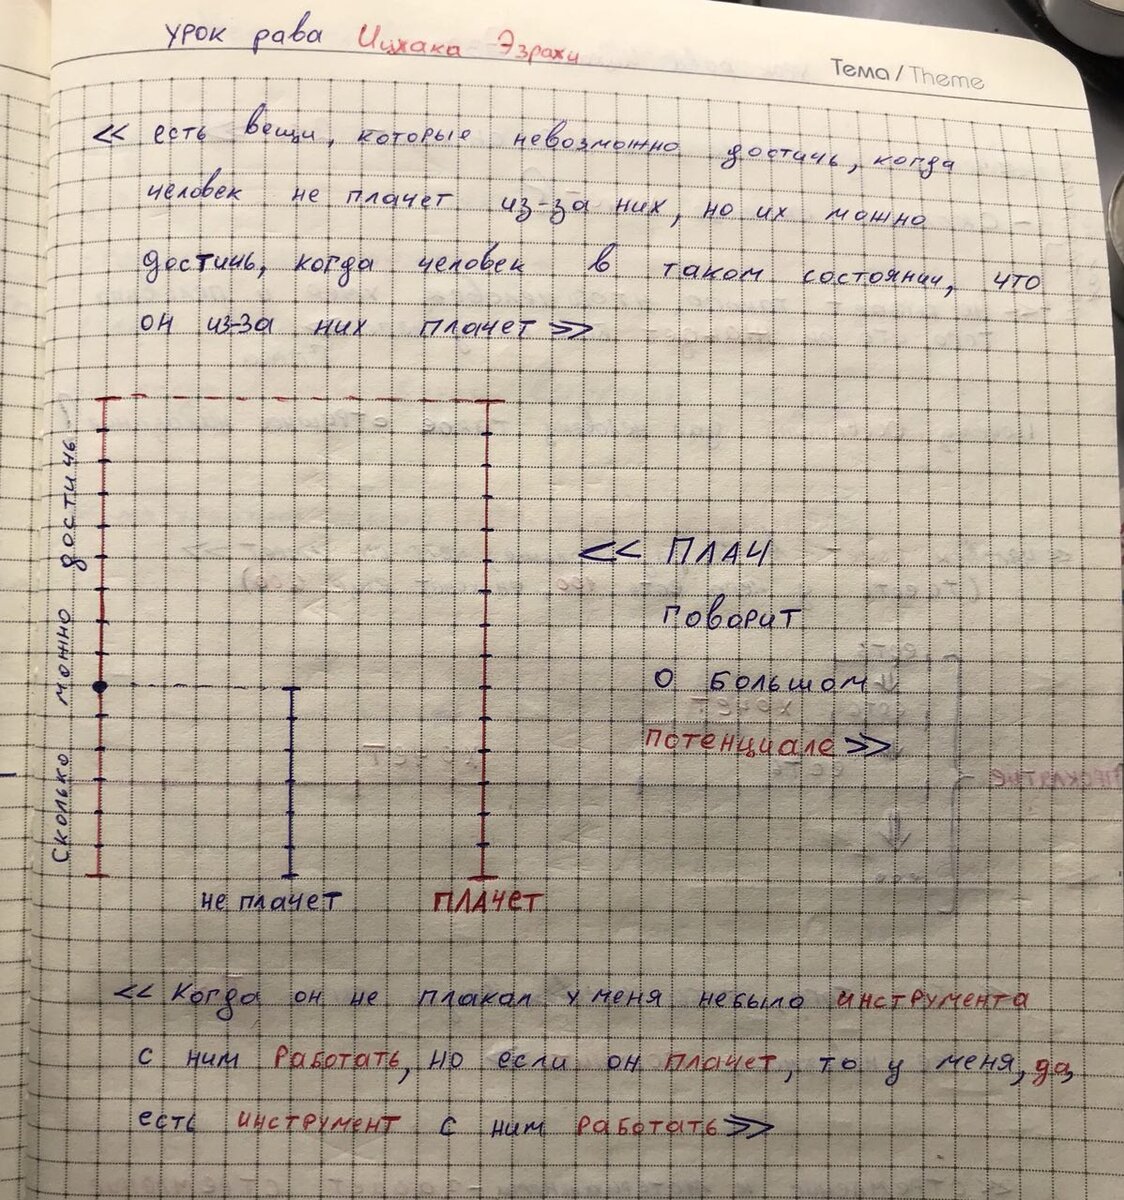 урок рава Ицхака Эзрахи
Тема / Theme
<< есть вещи, которые невозможно достичь, когда
человек не плачет из-за них, но их можно
достичь, когда человек в таком состоянии, что
он из-за них плачет >>
Сколько можно достичь
<< ПЛАЧ
говорит
о большом
потенциале >>
не плачет
плачет
<< Когда он не плакал у меня небыло инструмента
с ним работать, но если он плачет, то у меня, да,
есть инструмент с ним работать >>